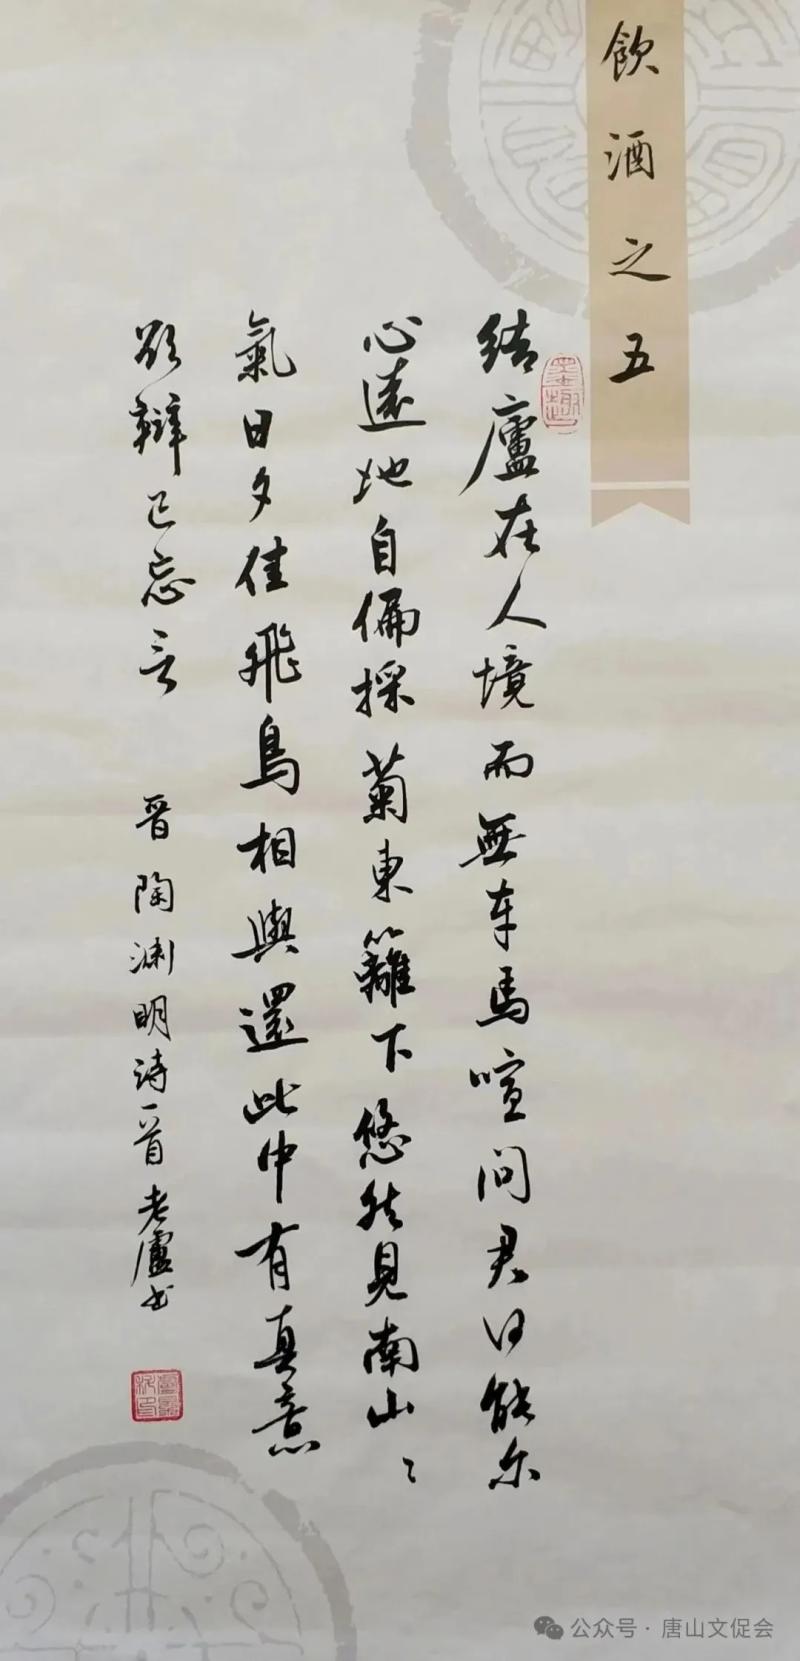 飲酒之五
結廬在人境而無车馬喧问君何能尔
心遠地自偏採菊東籬下悠然見南山〻
氣日夕佳飛鳥相與還此中有真意
欲辯已忘言
晋陶渊明诗一首老廬书
墨趣
公众号·唐山文促会